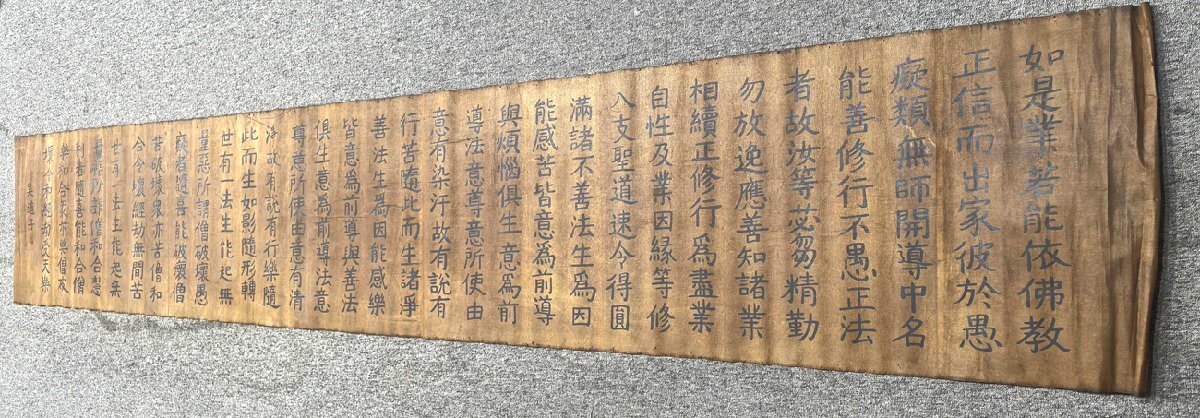 如是業若能依佛教
正信而出家彼於愚
癡類無師開導中名
能善修行不愚正法
者故汝等苾芻精勤
勿放逸應善知諸業
相續正修行為盡業
自性及業因緣等修
八支聖道速令得圓
滿諸不善法生為因
能感苦皆意為前導
與煩惱俱生意為前
導法意尊意所使由
意有染汙故有說有
行苦隨此而生諸爭
善法生為因能感樂
皆意為前導與善法
俱生意為前導法意
尊意所使由意有清
淨故有說有行樂隨
此而生如影隨形轉
世有一法生能起無
量惡所謂僧破壞愚
癡者隨喜能破壞僧
苦破壞眾亦苦僧和
合令壞經劫無間苦
世有一法生能起無
量福所謂僧和合慧
利者隨喜能和合僧
樂和合眾亦樂僧友
壞令和經劫受天樂